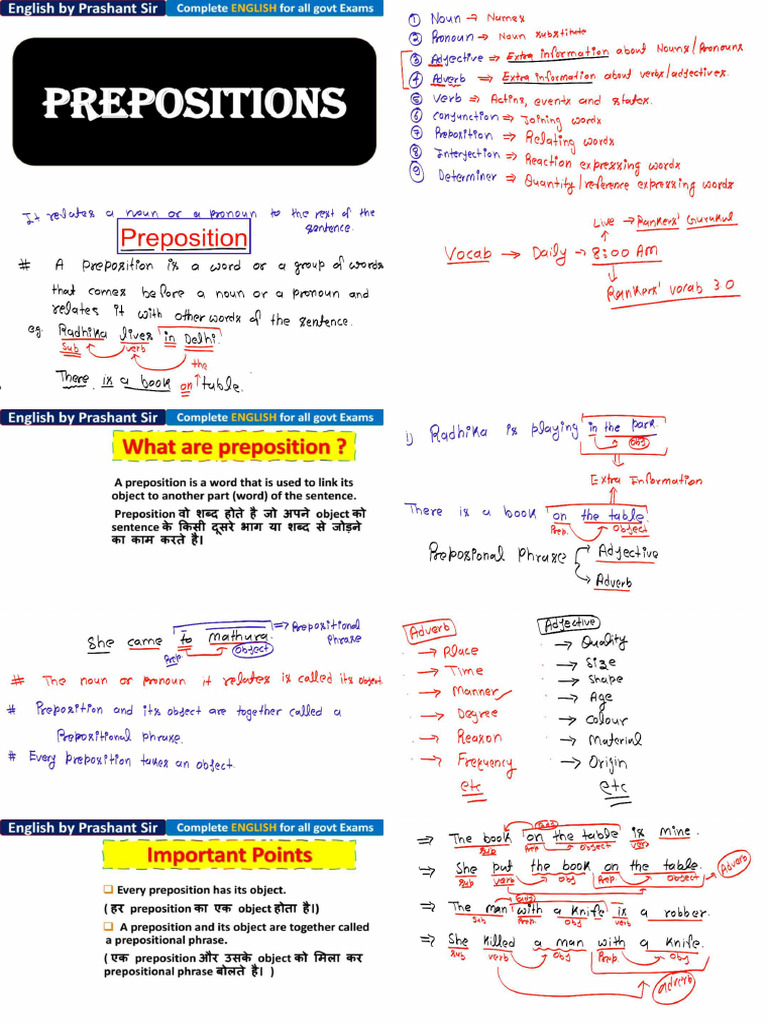 English by Prashant Sir
Complete ENGLISH for all govt Exams
PREPOSITIONS
It relates a noun or a pronoun to the rest of the
sentence.
Preposition
# A Preposition is a word or a group of words
that comes before a noun or a pronoun and
relates it with other words of the sentence.
eg. Radhika lives in Delhi.
Sub verb
the
There is a book on table.
① Noun → Names
② Pronoun → Noun substitute
③ Adjective ⇒ Extra information about Nouns/Pronouns
④ Adverb ⇒ Extra information about verbs/adjectives.
⑤ Verb ⇒ Actins, events and states.
⑥ Conjunction ⇒ Joining words
⑦ Preposition ⇒ Relating words
⑧ Interjection ⇒ Reaction expressing words
⑨ Determiner ⇒ Quantity/reference expressing words
Live → Rankers' Gurukul
Vocab → Daily → 8:00 AM
Rankers' vocab 3.0
English by Prashant Sir
Complete ENGLISH for all govt Exams
What are preposition ?
A preposition is a word that is used to link its
object to another part (word) of the sentence.
Preposition वो शब्द होते है जो अपने object को
sentence के किसी दूसरे भाग या शब्द से जोड़ने
का काम करते है।
i) Radhika is playing in the park.
obj
Extra Information
There is a book on the table.
Prep. object
Prepositional Phrase
Adjective
Adverb
She came to Mathura. ⇒ Prepositional
Phrase
Prep object
# The noun or pronoun it relates is called its object.
# Preposition and its object are together called a
Prepositional phrase.
# Every preposition takes an object.
Adverb
→ Place
→ Time
→ Manner
→ Degree
→ Reason
→ Frequency
etc
Adjective
→ Quality
→ Size
→ Shape
→ Age
→ Colour
→ Material
→ Origin
etc
English by Prashant Sir
Complete ENGLISH for all govt Exams
Important Points
❑ Every preposition has its object.
( हर preposition का एक object होता है।)
❑ A preposition and its object are together called
a prepositional phrase.
( एक preposition और उसके object को मिला कर
prepositional phrase बोलते है। )
⇒ The book on the table is mine.
Sub Prep object verb
⇒ She put the book on the table.
Sub verb Obj Prep. Object
Adverb
⇒ The man with a knife is a robber.
Sub Prep obj verb
⇒ She killed a man with a knife.
Sub verb Obj Prep. Obj
adverb